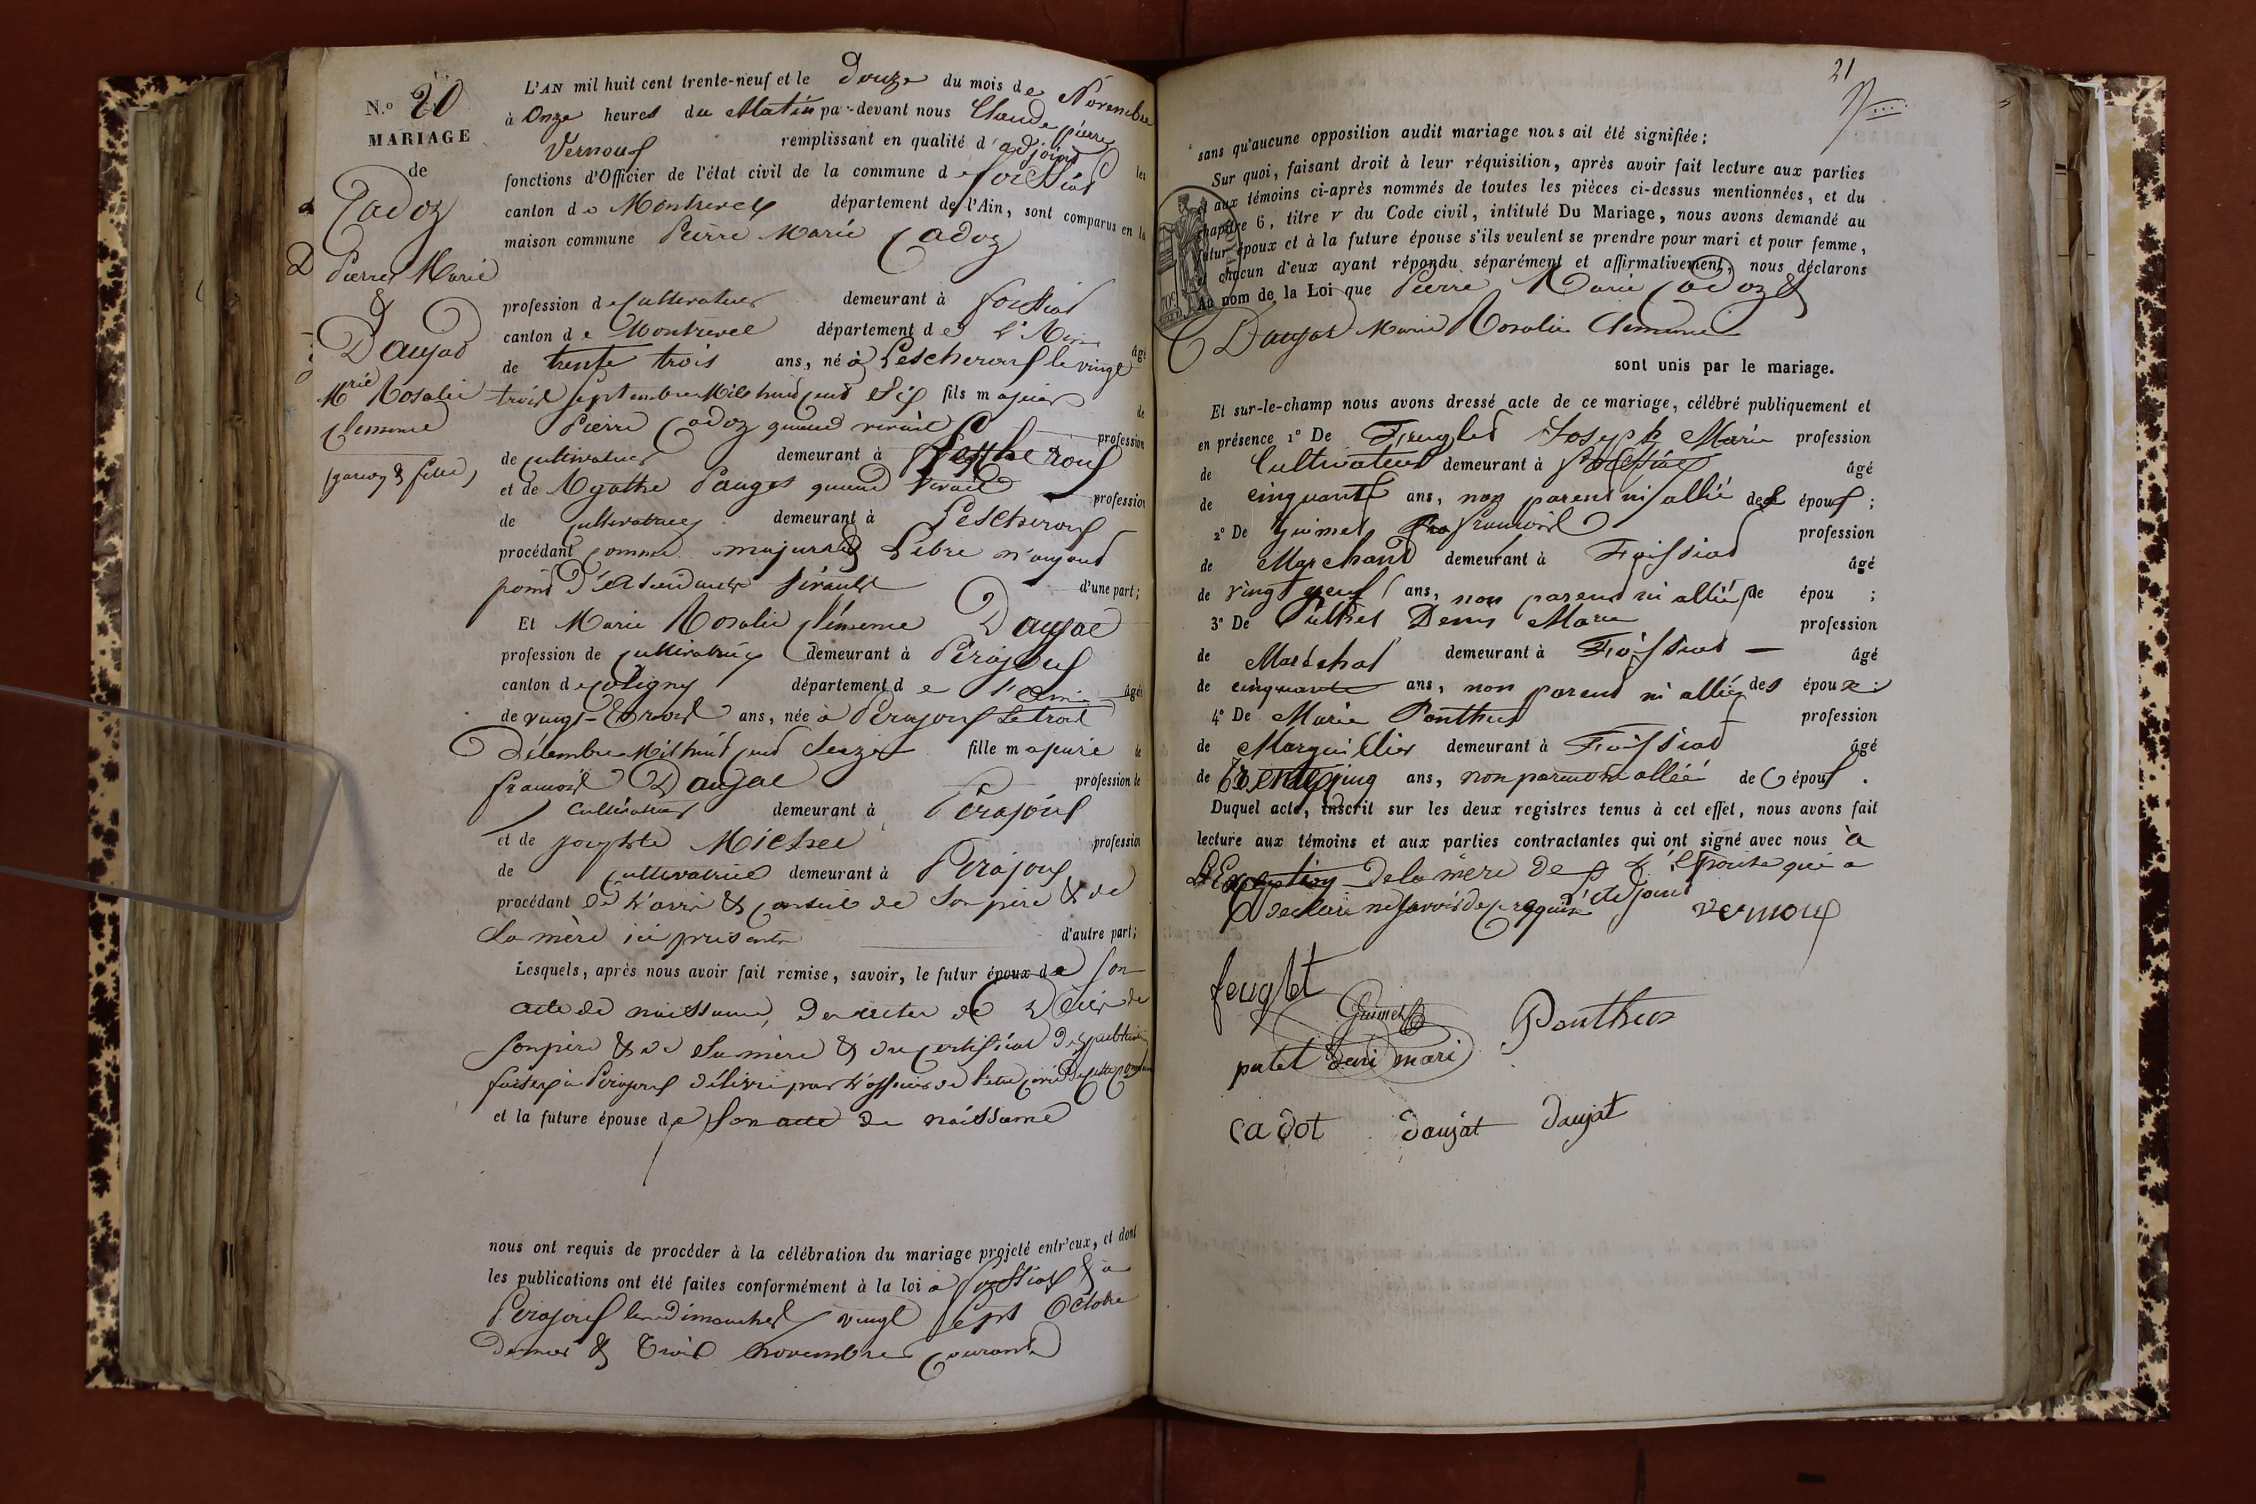 N.o 20
MARIAGE
de
Cadoz
Pierre Marie
&
Daujat
Mrie Rosalie
Clemence
(garçon & fille)
L'AN mil huit cent trente-neuf et le Douze du mois de Novembre
à Onze heures du Matin par-devant nous Claude pierre
Vernoux remplissant en qualité d'adjoint les
fonctions d'Officier de l'état civil de la commune de foissiat
canton de Montrevel département de l'Ain, sont comparus en la
maison commune Pierre Marie Cadoz
profession de Cultivateur demeurant à foissiat
canton de Montrevel département de L'Ain
âgé
de trente trois ans, né à Lescheroux le vingt
trois septembre Mil huit cent six fils majeur de
Pierre Cadoz quand vivait profession
de cultivateur demeurant à Lescheroux
et de Agathe Pauget quand vivait profession
de cultivatrice demeurant à Lescheroux
procédant comme majeur & Libre n'ayant
point d'ascendants vivants d'une part;
Et Marie Rosalie Clémence Daujat
profession de cultivatrice demeurant à Pirajoux
canton de coligny département de l'ain âgée
de vingt-trois ans, née à Pirajoux Le trois
Décembre Mil huit cent seize fille majeure de
francois Daujat profession de
Cultivateur demeurant à Pirajoux
et de josephte Michel profession
de cultivatrice demeurant à Pirajoux
procédant de l'avis & conseil de son père & de
sa mère ici présents d'autre part;
Lesquels, après nous avoir fait remise, savoir, le futur époux de son
acte de naissance, des actes de Décès de
son père & de sa mère & du certificat de publication
faites à Pirajoux délivré par l'officier de l'état civil de cette commune
et la future épouse de son acte de naissance
nous ont requis de procéder à la célébration du mariage projeté entr'eux, et dont
les publications ont été faites conformément à la loi à foissiat & à
Pirajoux les dimanches vingt sept Octobre
dernier & trois novembre courant
21
sans qu'aucune opposition audit mariage nous ait été signifiée;
Sur quoi, faisant droit à leur réquisition, après avoir fait lecture aux parties
et aux témoins ci-après nommés de toutes les pièces ci-dessus mentionnées, et du
chapitre 6, titre v du Code civil, intitulé Du Mariage, nous avons demandé au
futur époux et à la future épouse s'ils veulent se prendre pour mari et pour femme,
et chacun d'eux ayant répondu séparément et affirmativement, nous déclarons
Au nom de la Loi que Pierre Marie Cadoz &
Daujat Marie Rosalie Clemence
sont unis par le mariage.
Et sur-le-champ nous avons dressé acte de ce mariage, célébré publiquement et
en présence 1° De Feuglet Joseph Marie profession
de Cultivateur demeurant à foissiat âgé
de cinquante ans, non parent ni allié des époux;
2° De Guimet francois profession
de Marchand demeurant à Foissiat âgé
de vingt neuf ans, non parent ni allié de épou ;
3° De Puthet Denis Marie profession
de Maréchal demeurant à Foissiat âgé
de cinquante ans, non parent ni allié des époux;
4° De Marie Ponthus profession
de Marguillier demeurant à Foissiat âgé
de trente cinq ans, non parent ni allié de époux.
Duquel acte, inscrit sur les deux registres tenus à cet effet, nous avons fait
lecture aux témoins et aux parties contractantes qui ont signé avec nous à
L'Exception de la mère de l'épouse qui a
déclaré ne savoir de ce requise
vernoux
feuglet
Guimet
Ponthus
putet deni mari
cadot daujat daujat